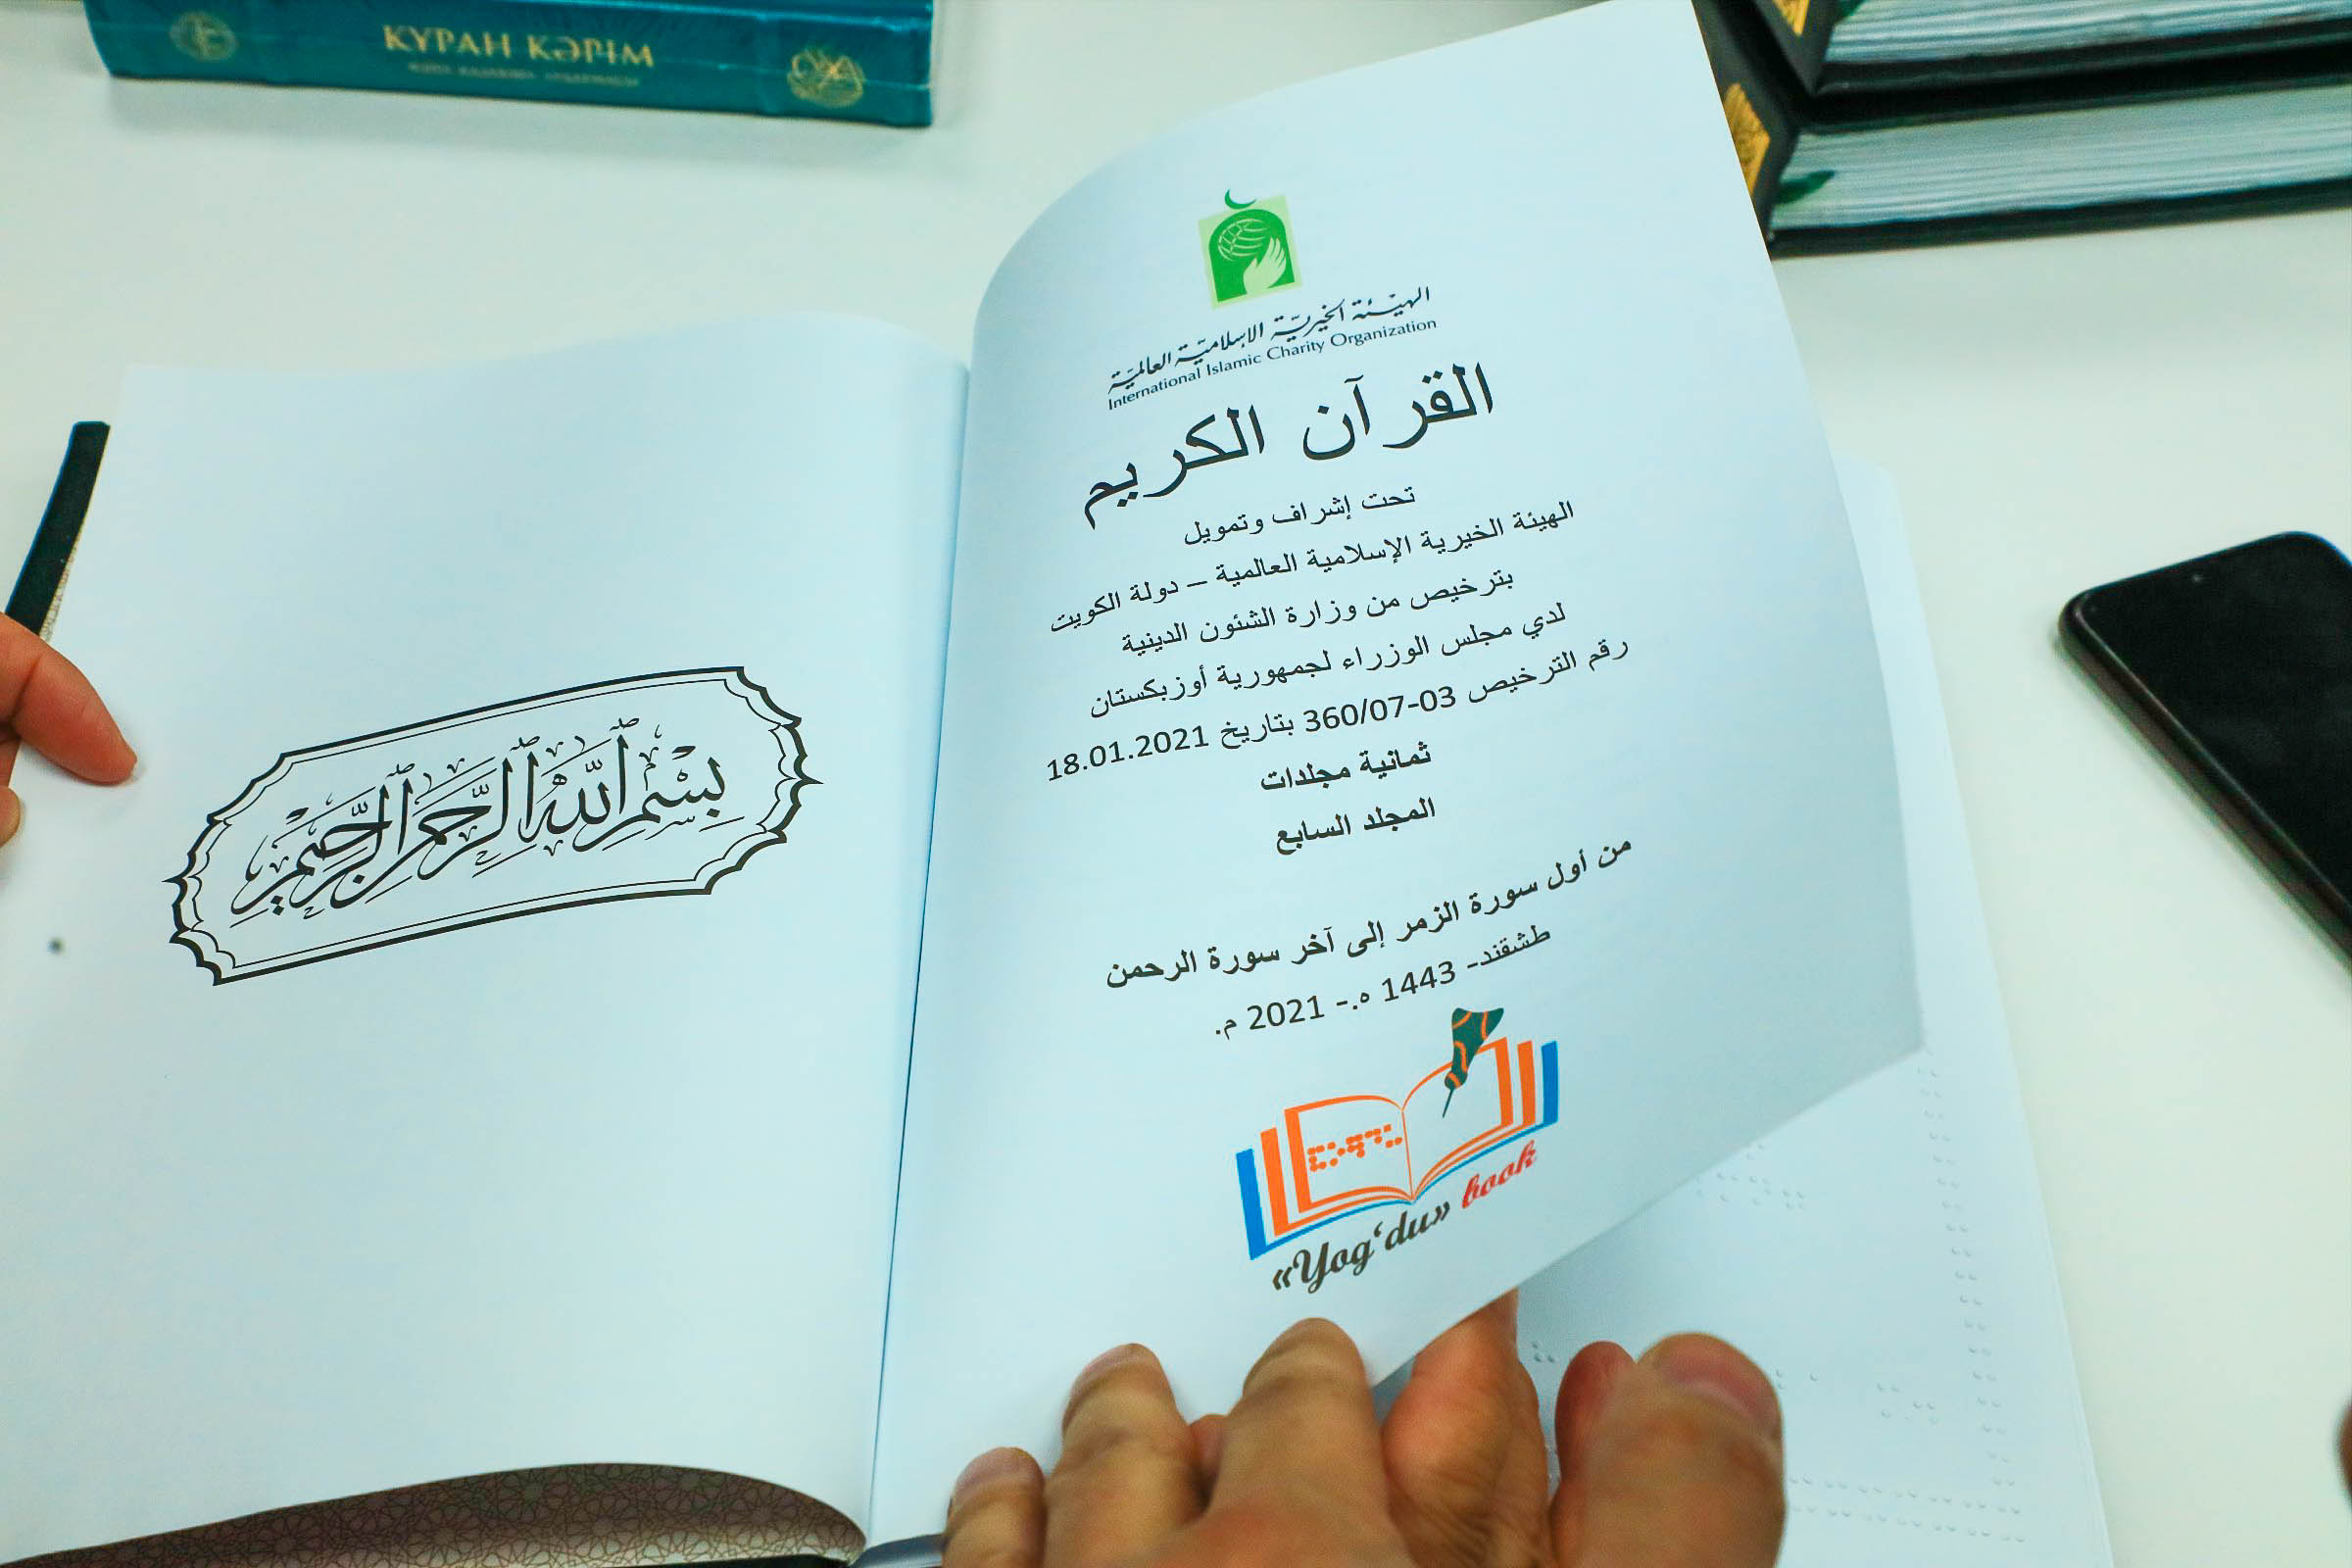 КУРАН КӘРІМ
بِسْمِ ٱللَّهِ ٱلرَّحْمَٰنِ ٱلرَّحِيمِ
الهيئة الخيريّة الإسلاميّة العالميّة
International Islamic Charity Organization
القرآن الكريم
تحت إشراف وتمويل
الهيئة الخيرية الإسلامية العالمية – دولة الكويت
بترخيص من وزارة الشئون الدينية
لدي مجلس الوزراء لجمهورية أوزبكستان
رقم الترخيص 03-07/360 بتاريخ 18.01.2021
ثمانية مجلدات
المجلد السابع
من أول سورة الزمر إلى آخر سورة الرحمن
طشقند- 1443 ه.- 2021 م.
«Yog‘du» book